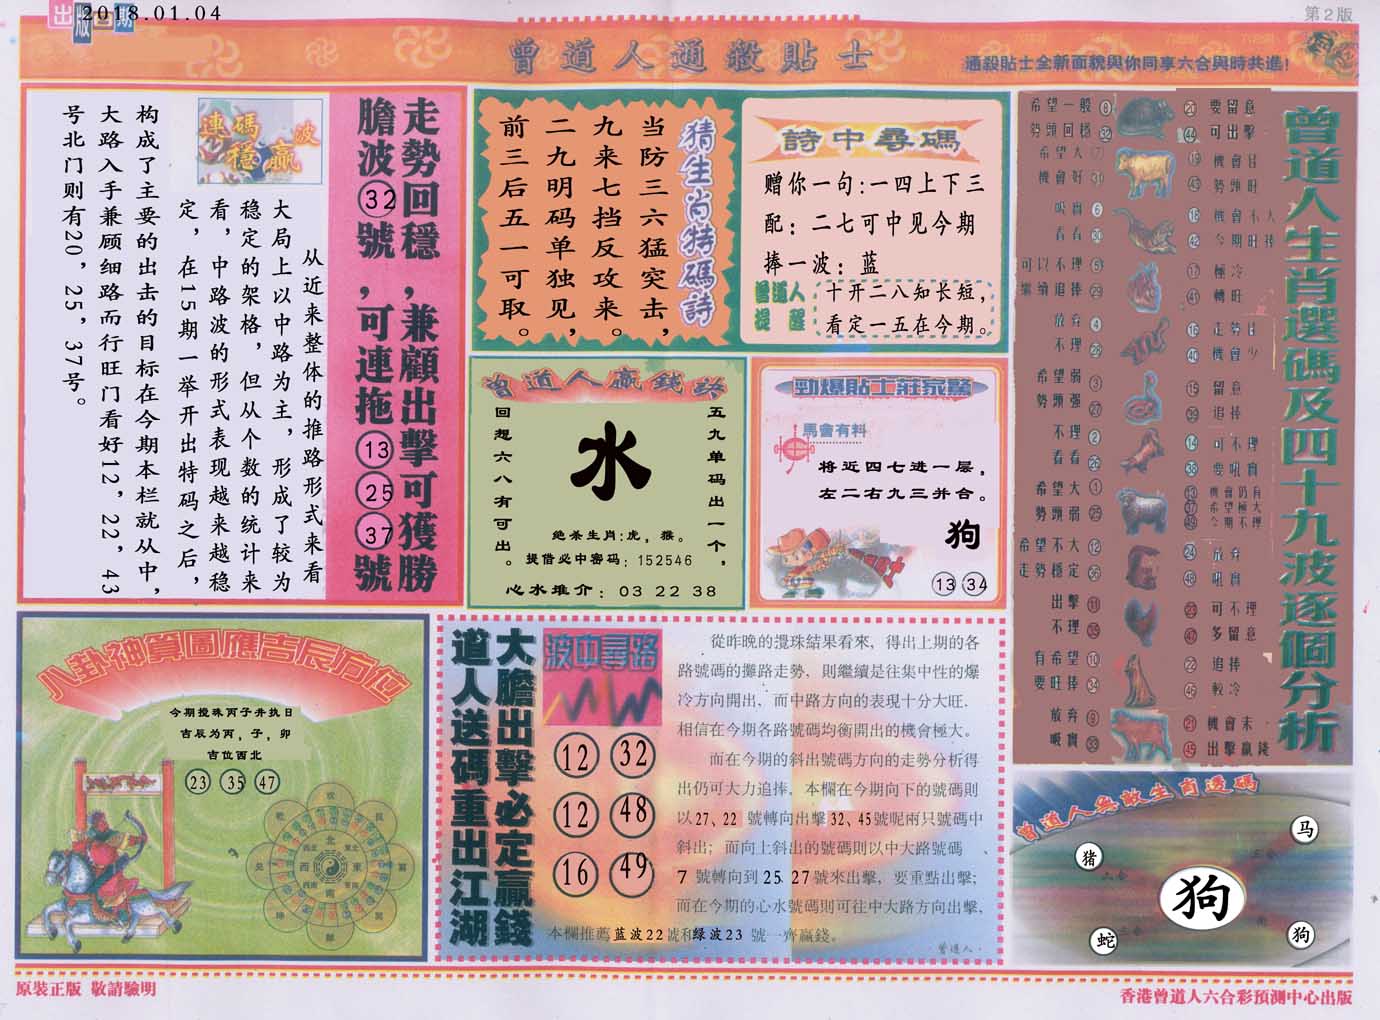 出版日期
2018.01.04
第2版
曾道人通殺貼士
通殺貼士全新面貌與你同享六合與時共進!
走勢回穩,兼顧出擊可獲勝
膽波32號,可連拖13 25 37號
連碼穩贏波
从近来整体的推路形式来看
大局上以中路为主,形成了较为
稳定的架格,但从个数的统计来
看,中路波的形式表现越来越稳
定,在15期一举开出特码之后,
构成了主要的出击的目标在今期本栏就从中,
大路入手兼顾细路而行旺门看好12,22,43
号北门则有20,25,37号。
猜生肖特碼詩
当防三六猛突击,
九来七挡反攻来。
二九明码单独见,
前三后五一可取。
詩中尋碼
赠你一句:一四上下三
配:二七可中见今期
捧一波:蓝
曾道人提醒
十开二八知长短,
看定一五在今期。
曾道人贏錢诀
五九单码出一个,
回想六八有可出。
水
绝杀生肖:虎,猴。
提借必中密码:152546
心水推介:03 22 38
勁爆貼士莊家驚
馬會有料
将近四七进一层,
左二右九三并合。
狗
13 34
曾道人生肖選碼及四十九波逐個分析
希望一般 8
勢頭回穩 32
20 要留意
44 可出擊
希望大 7
機會好 31
19 機會佳
43 勢頭旺
吸實 6
看看 30
18 機會不大
42 今期旺捧
可以不理 5
繼續追捧 29
17 極冷
41 轉旺
放弃 4
不理 28
16 走勢佳
40 機會少
希望弱 3
勢頭强 27
15 留意
39 追捧
不理 2
看看 26
14 可不理
38 要吼實
希望大 1
勢頭弱 25
13 機會仍有
37 希望極大
49 今期不理
希望不大 12
走勢穩定 36
24 放弃
48 吼實
出擊 11
不理 35
23 可不理
47 多留意
有希望 10
要旺捧 34
22 追捧
46 較冷
放弃 9
吸實 33
21 機會末
45 出擊贏錢
八卦神算圖應吉辰方位
今期搅珠丙子并执日
吉辰为丙,子,卯
吉位西北
23 35 47
大膽出擊必定贏錢
道人送碼重出江湖
波中尋路
12 32
12 48
16 49
從昨晚的攪珠結果看來,得出上期的各
路號碼的攤路走勢,則繼續是往集中性的爆
冷方向開出,而中路方向的表現十分大旺.
相信在今期各路號碼均衡開出的機會極大。
而在今期的斜出號碼方向的走勢分析得
出仍可大力追捧,本欄在今期向下的號碼則
以27、22 號轉向出擊32、45號呢兩只號碼中
斜出;而向上斜出的號碼則以中大路號碼、
7 號轉向到25 27號來出擊,要重點出擊;
而在今期的心水號碼則可往中大路方向出擊,
本欄推薦蓝波22號和绿波23 號一齊贏錢。
曾道人·
曾道人無敵生肖透碼
马
猪
狗
蛇
狗
原裝正版 敬請驗明
香港曾道人六合彩預測中心出版